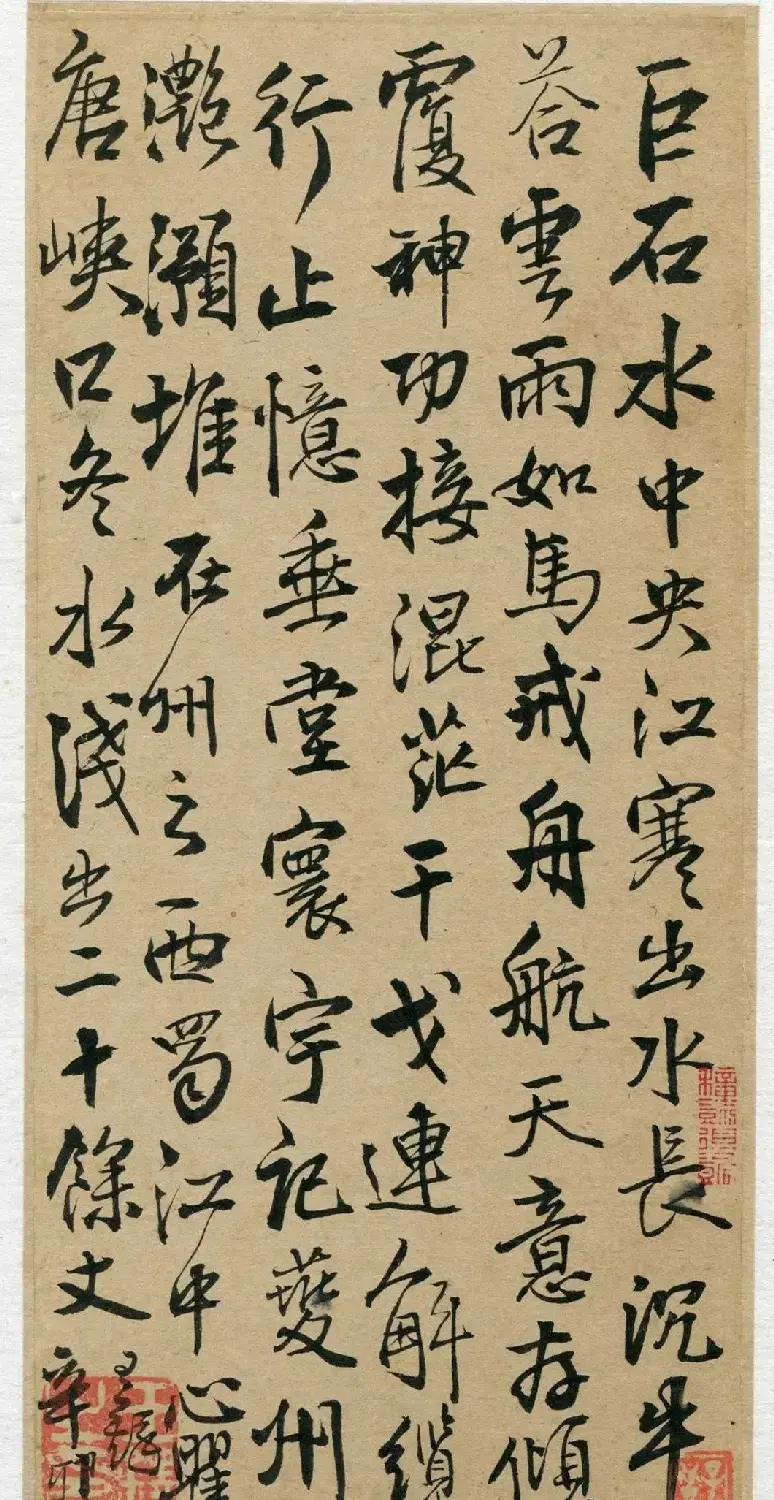 巨石水中央江寒出水長沉牛
荅雲雨如馬戒舟航天意存傾
覆神功接混茫干戈連解纜
行止憶垂堂寰宇記夔州
灩澦堆在州之西蜀江中心瞿
唐峽口冬水浅出二十餘丈辛卯
王鐸